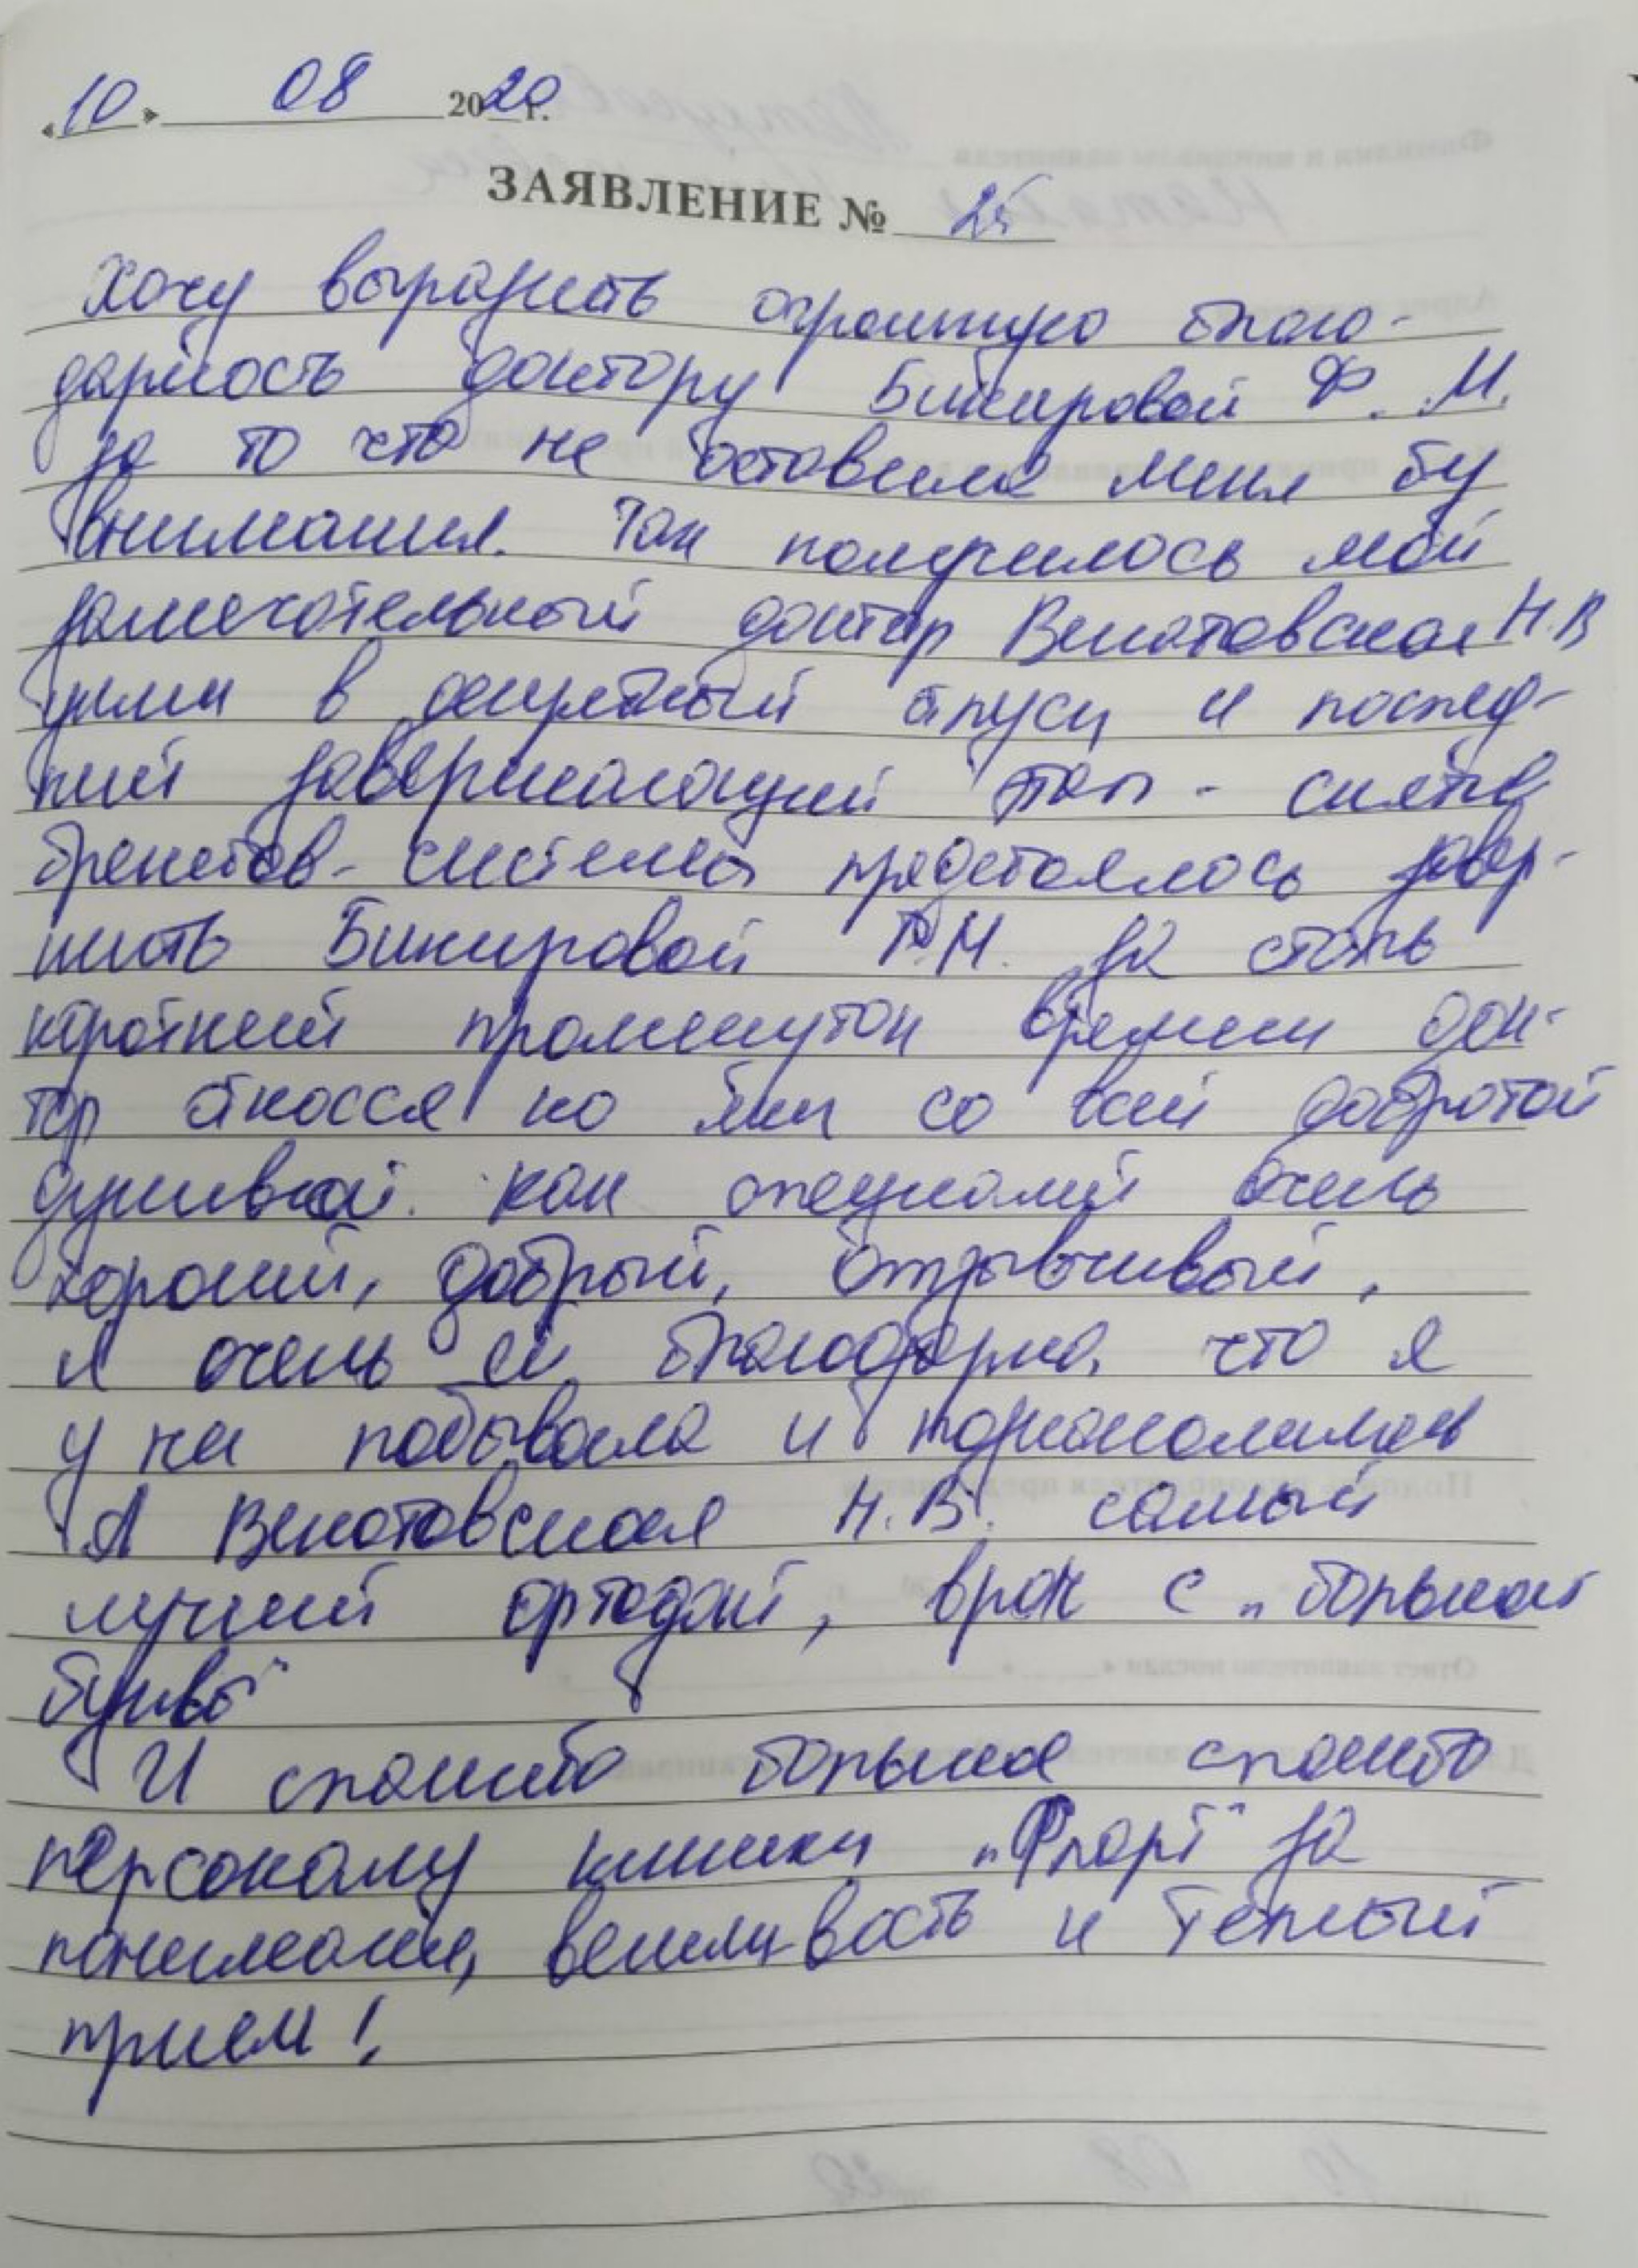 «10» 08 2020 г.
ЗАЯВЛЕНИЕ № 25
Хочу выразить огромную благо-
дарность доктору Бикировой Ф. М.
за то что не оставила меня бу
внимания. Так получилось мой
замечательный доктор Вилотовская Н.В
ушли в декретный отпуск и послед-
ний завершающий этап - снятие
брекетов-системы предстоялось завер-
шить Бикировой Ф.М. За столь
короткий промежуток времени док-
тор относся ко мне со всей добротой
душивной. Как специалист очень
хороший, добрый, отзывчивый,
я очень ей благодарна, что я
у неё побывала и
А Вилотовская Н.В. самый
лучший ортодонт, врач с „большой
буквы"
И спасибо большое спасибо
персоналу клиники „Флорт" за
понимание, вежливость и тёплый
приём!